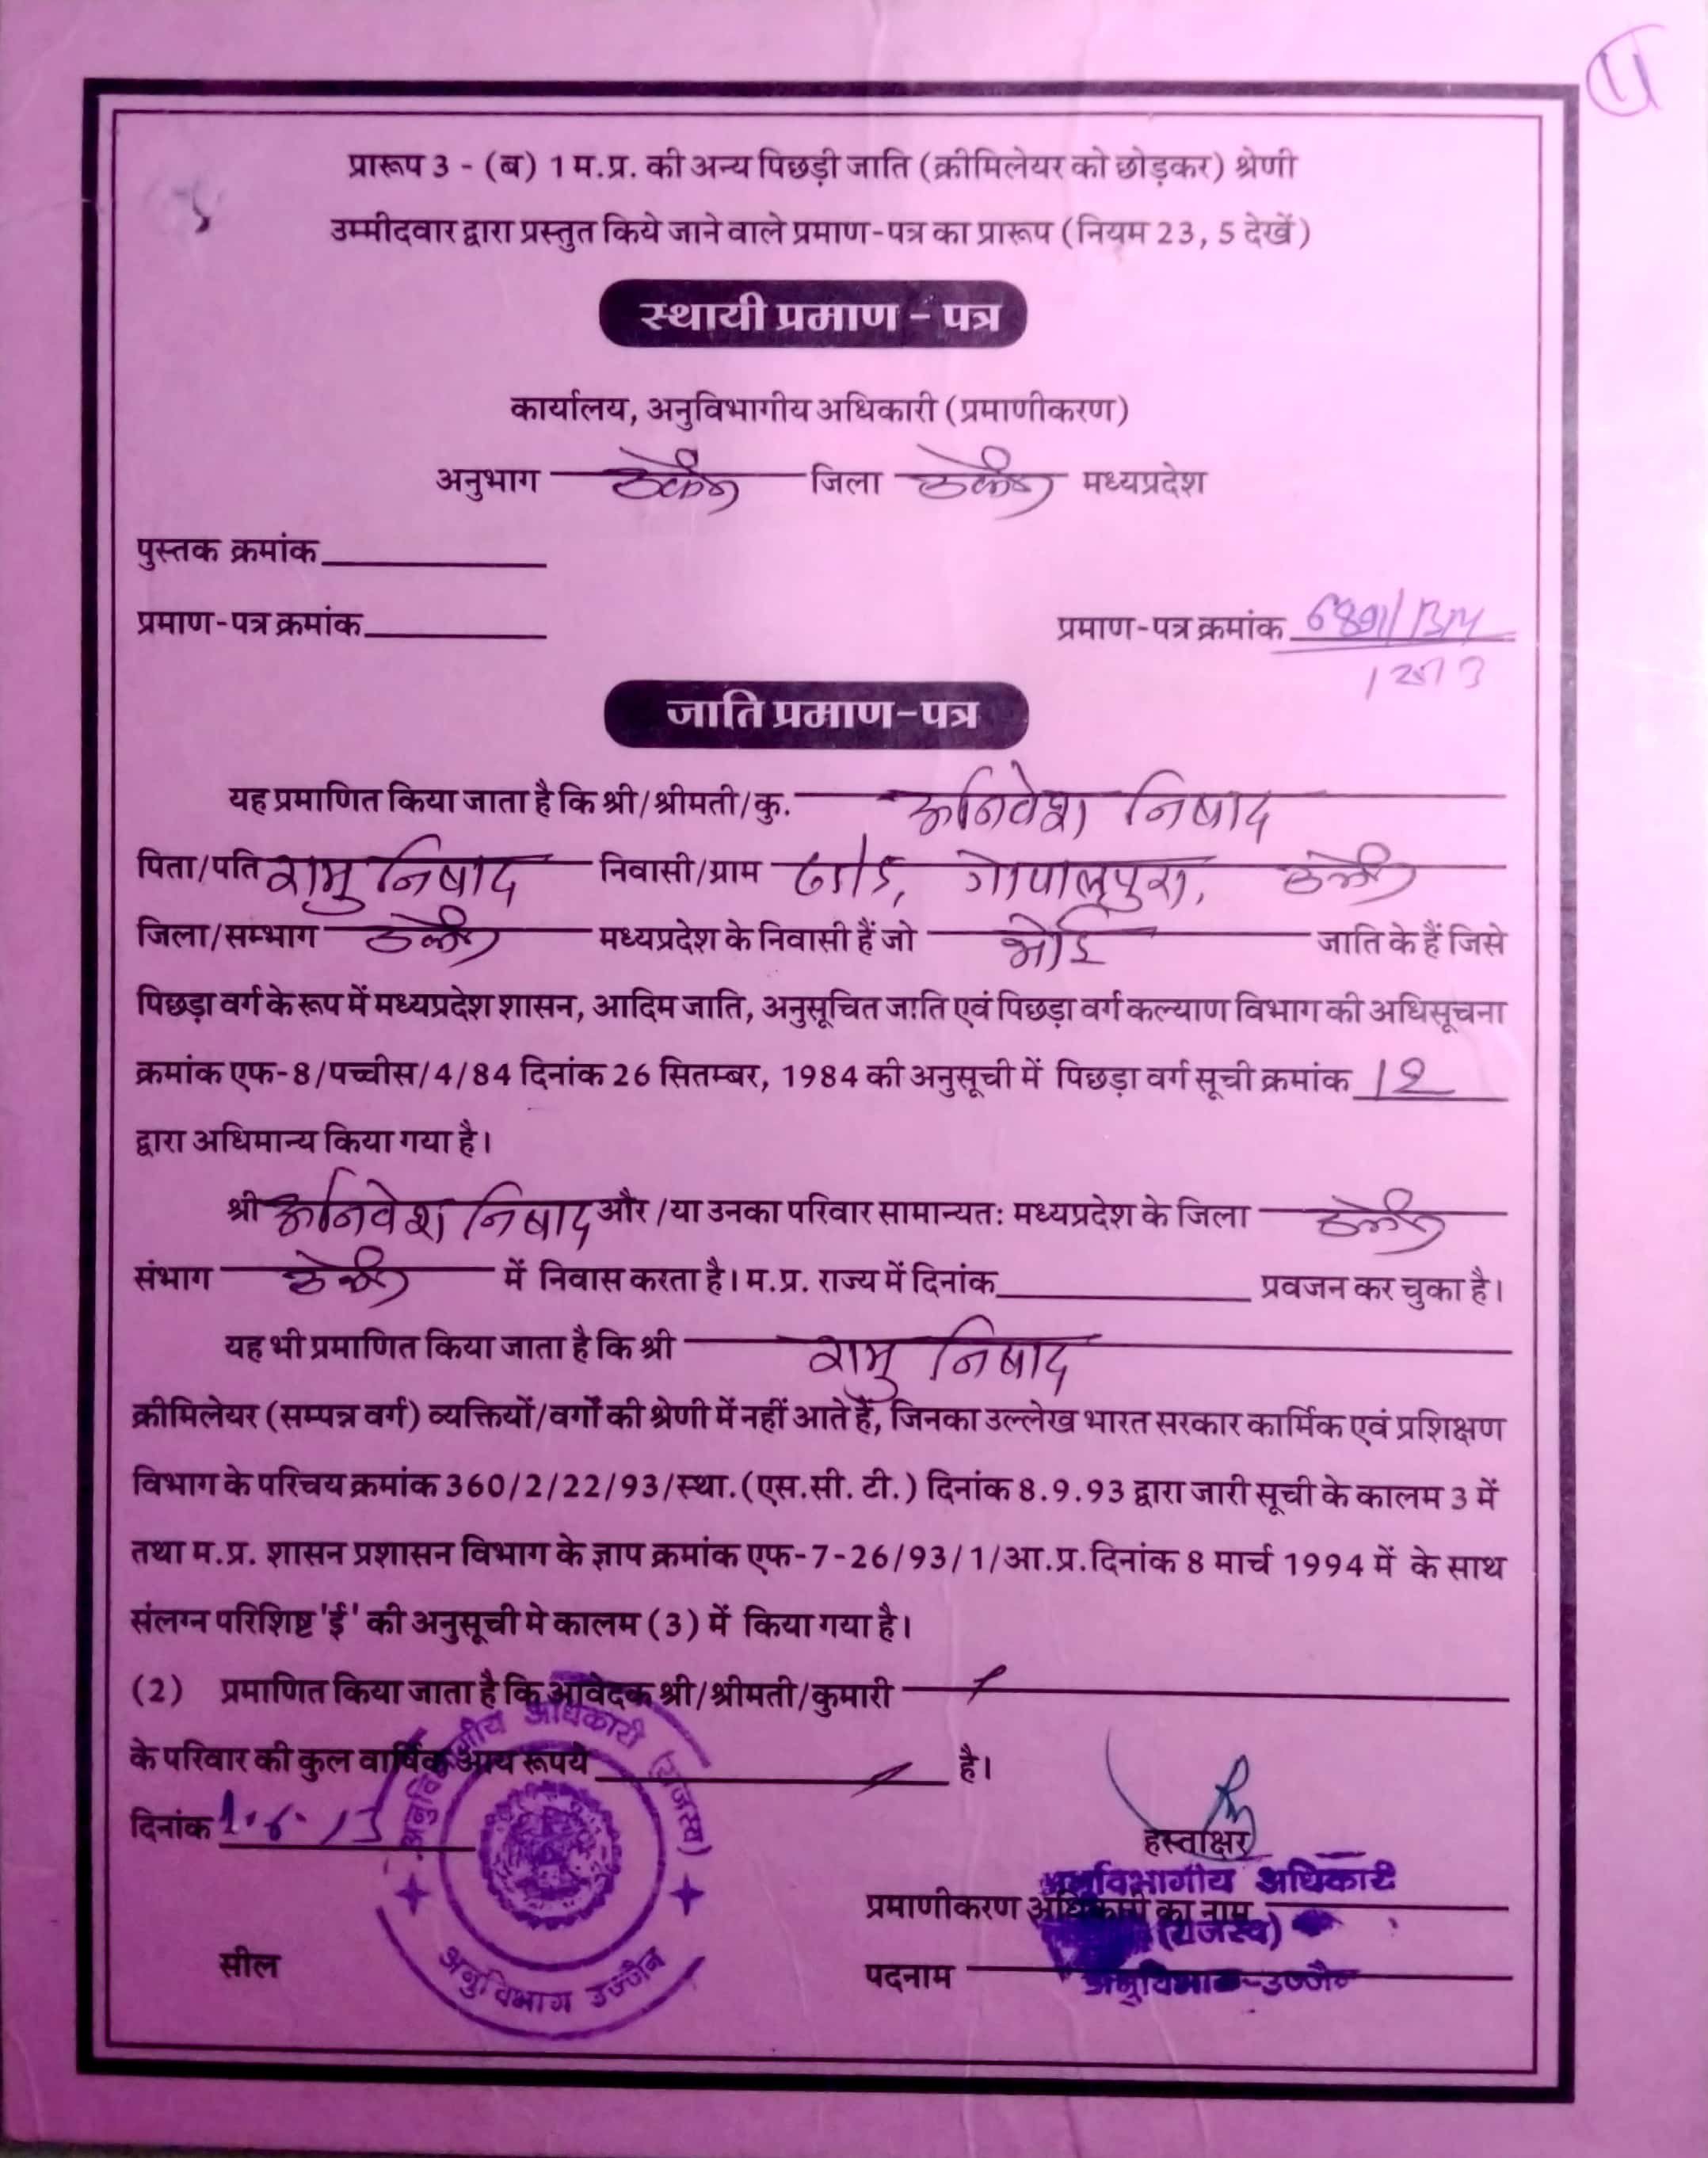 प्रारूप 3 - (ब) 1 म.प्र. की अन्य पिछड़ी जाति (क्रीमिलेयर को छोड़कर) श्रेणी
उम्मीदवार द्वारा प्रस्तुत किये जाने वाले प्रमाण-पत्र का प्रारूप (नियम 23, 5 देखें)
स्थायी प्रमाण - पत्र
कार्यालय, अनुविभागीय अधिकारी (प्रमाणीकरण)
अनुभाग उज्जैन जिला उज्जैन मध्यप्रदेश
पुस्तक क्रमांक
प्रमाण-पत्र क्रमांक प्रमाण-पत्र क्रमांक
जाति प्रमाण-पत्र
यह प्रमाणित किया जाता है कि श्री/श्रीमती/कु. अनिवेश निषाद
पिता/पति रामु निषाद निवासी/ग्राम गोपालपुरा, उज्जैन
जिला/सम्भाग उज्जैन मध्यप्रदेश के निवासी हैं जो भोई जाति के हैं जिसे
पिछड़ा वर्ग के रूप में मध्यप्रदेश शासन, आदिम जाति, अनुसूचित जाति एवं पिछड़ा वर्ग कल्याण विभाग की अधिसूचना
क्रमांक एफ-8/पच्चीस/4/84 दिनांक 26 सितम्बर, 1984 की अनुसूची में पिछड़ा वर्ग सूची क्रमांक 12
द्वारा अधिमान्य किया गया है।
श्री अनिवेश निषाद और/या उनका परिवार सामान्यतः मध्यप्रदेश के जिला उज्जैन
संभाग उज्जैन में निवास करता है। म.प्र. राज्य में दिनांक प्रवजन कर चुका है।
यह भी प्रमाणित किया जाता है कि श्री रामु निषाद
क्रीमिलेयर (सम्पन्न वर्ग) व्यक्तियों/वर्गों की श्रेणी में नहीं आते हैं, जिनका उल्लेख भारत सरकार कार्मिक एवं प्रशिक्षण
विभाग के परिचय क्रमांक 360/2/22/93/स्था.(एस.सी. टी.) दिनांक 8.9.93 द्वारा जारी सूची के कालम 3 में
तथा म.प्र. शासन प्रशासन विभाग के ज्ञाप क्रमांक एफ-7-26/93/1/आ.प्र.दिनांक 8 मार्च 1994 में के साथ
संलग्न परिशिष्ट 'ई' की अनुसूची मे कालम (3) में किया गया है।
(2) प्रमाणित किया जाता है कि आवेदक श्री/श्रीमती/कुमारी
के परिवार की कुल वार्षिक आय रूपये है।
दिनांक
हस्ताक्षर
अनुविभागीय अधिकारी
प्रमाणीकरण अधिकारी का नाम
(राजस्व)
सील
पदनाम
अनुविभाग-उज्जैन
अनुविभागीय अधिकारी (राजस्व)
अनुविभाग उज्जैन